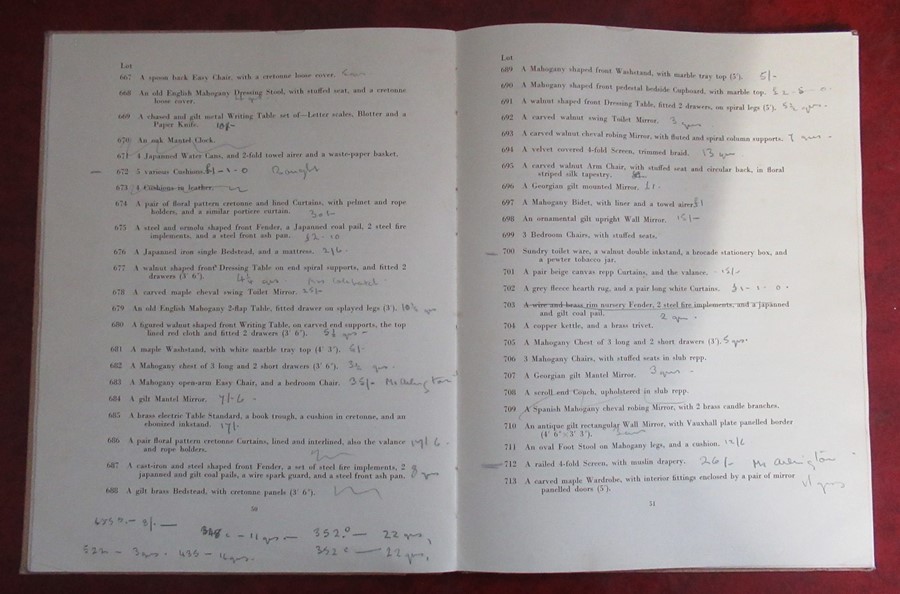 Lot
667 A spoon back Easy Chair, with a cretonne loose cover.
668 An old English Mahogany Dressing Stool, with stuffed seat, and a cretonne
loose cover.
669 A chased and gilt metal Writing Table set of—Letter scales, Blotter and a
Paper Knife.
670 An oak Mantel Clock.
671 4 Japanned Water Cans, and 2-fold towel airer and a waste-paper basket.
672 5 various Cushions. £1-1-0
673 4 Cushions in leather.
674 A pair of floral pattern cretonne and lined Curtains, with pelmet and rope
holders, and a similar portiere curtain. 30/-
675 A steel and ormolu shaped front Fender, a Japanned coal pail, 2 steel fire
implements, and a steel front ash pan. £2-10
676 A Japanned iron single Bedstead, and a mattress. 2/6
677 A walnut shaped front Dressing Table on end spiral supports, and fitted 2
drawers (3' 6").
678 A carved maple cheval swing Toilet Mirror. 25/-
679 An old English Mahogany 2-flap Table, fitted drawer on splayed legs (3'). 10½ gns
680 A figured walnut shaped front Writing Table, on carved end supports, the top
lined red cloth and fitted 2 drawers (3' 6"). 5½ gns
681 A maple Washstand, with white marble tray top (4' 3"). 6/-
682 A Mahogany chest of 3 long and 2 short drawers (3' 6"). 3½ gns
683 A Mahogany open-arm Easy Chair, and a bedroom Chair. 35/-
684 A gilt Mantel Mirror. 7/-6
685 A brass electric Table Standard, a book trough, a cushion in cretonne, and an
ebonized inkstand. 17/-
686 A pair floral pattern cretonne Curtains, lined and interlined, also the valance
and rope holders.
687 A cast-iron and steel shaped front Fender, a set of steel fire implements, 2
japanned and gilt coal pails, a wire spark guard, and a steel front ash pan. 8 gns
688 A gilt brass Bedstead, with cretonne panels (3' 6").
50
8/-
11 gns 352 22 gns
3 gns 352 22 gns
Lot
689 A Mahogany shaped front Washstand, with marble tray top (3'). 5/-
690 A Mahogany shaped front pedestal bedside Cupboard, with marble top.
691 A walnut shaped front Dressing Table, fitted 2 drawers, on spiral legs (3'). 5½ gns
692 A carved walnut swing Toilet Mirror. 3 gns
693 A carved walnut cheval robing Mirror, with fluted and spiral column supports. 7 gns
694 A velvet covered 4-fold Screen, trimmed braid. 13 gns
695 A carved walnut Arm Chair, with stuffed seat and circular back, in floral
striped silk tapestry.
696 A Georgian gilt mounted Mirror. £1
697 A Mahogany Bidet, with liner and a towel airer £1
698 An ornamental gilt upright Wall Mirror. 15/-
699 3 Bedroom Chairs, with stuffed seats.
700 Sundry toilet ware, a walnut double inkstand, a brocade stationery box, and
a pewter tobacco jar.
701 A pair beige canvas repp Curtains, and the valance. 15/-
702 A grey fleece hearth rug, and a pair long white Curtains.
703 A wire and brass rim nursery Fender, 2 steel fire implements, and a japanned
and gilt coal pail. 2 gns
704 A copper kettle, and a brass trivet.
705 A Mahogany Chest of 3 long and 2 short drawers (3'). 5 gns
706 3 Mahogany Chairs, with stuffed seats in slub repp.
707 A Georgian gilt Mantel Mirror. 3 gns
708 A scroll-end Couch, upholstered in slub repp.
709 A Spanish Mahogany cheval robing Mirror, with 2 brass candle branches.
710 An antique gilt rectangular Wall Mirror, with Vauxhall plate panelled border
(4' 6" × 3' 3").
711 An oval Foot Stool on Mahogany legs, and a cushion. 12/6
712 A railed 4-fold Screen, with muslin drapery. 26/-
713 A carved maple Wardrobe, with interior fittings enclosed by a pair of mirror
panelled doors (5').
51